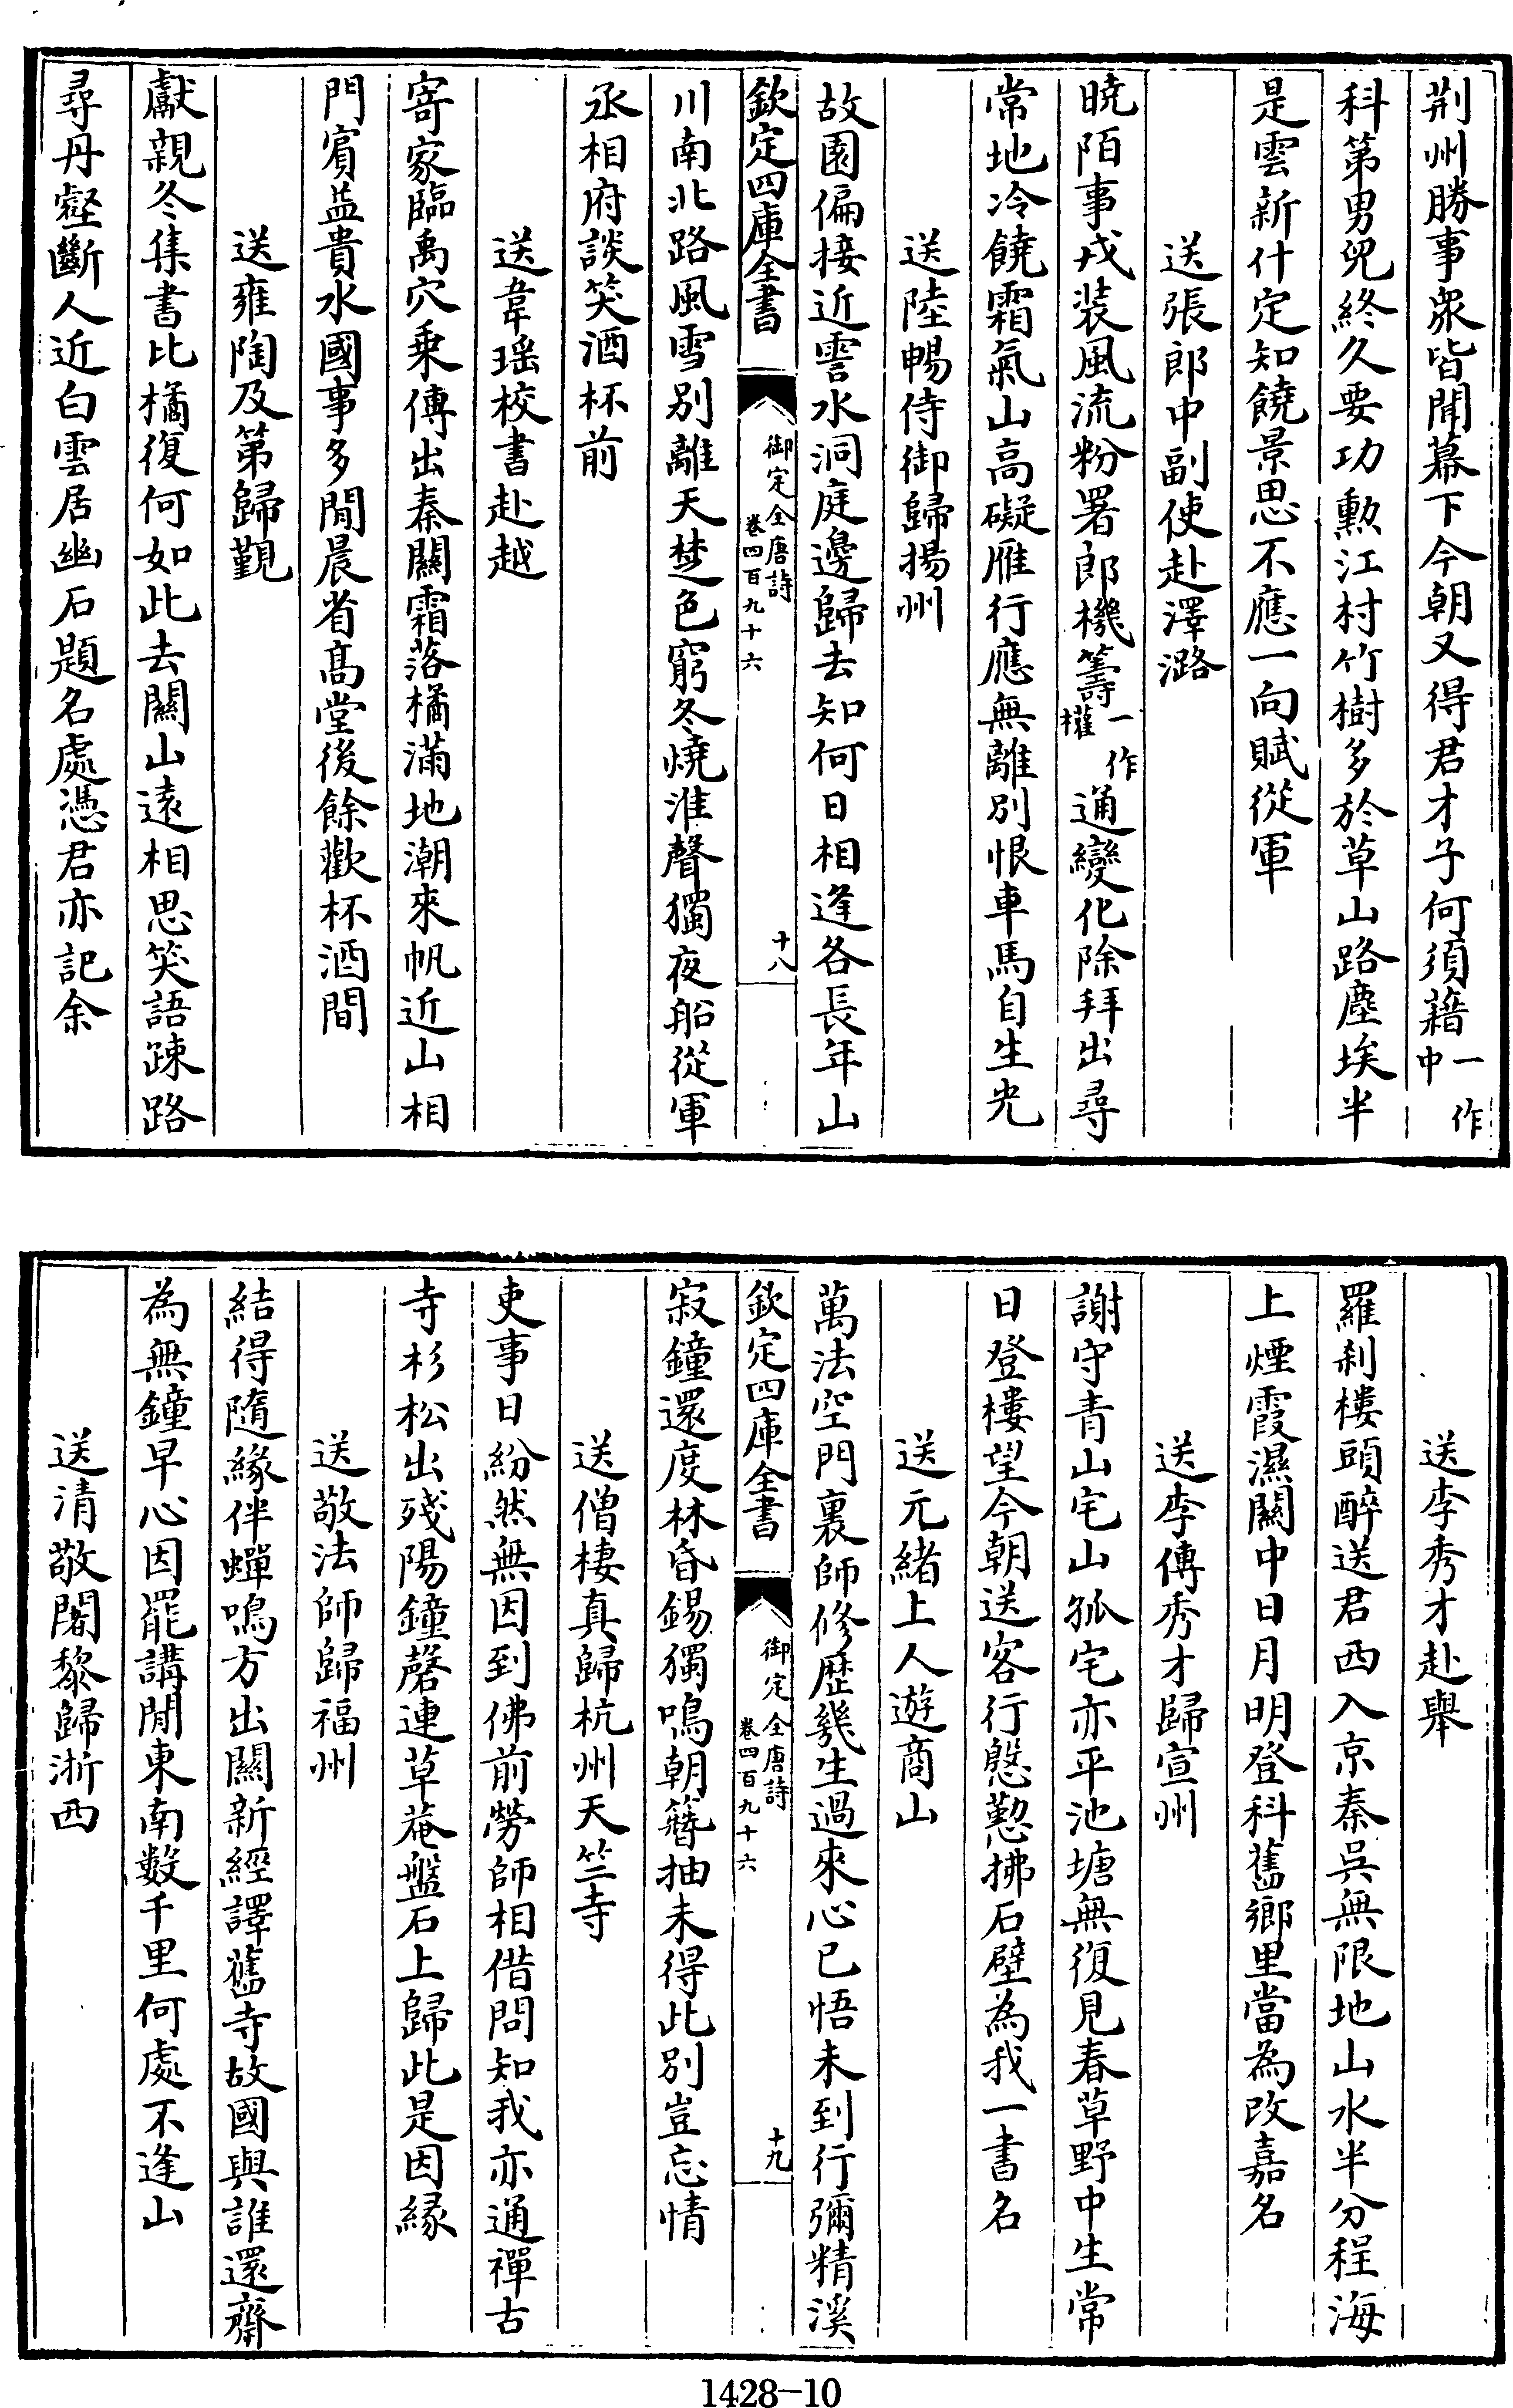 荆州勝事衆皆聞幕下今朝又得君才子何須藉一作中
科第男兒終久要功勲江村竹樹多於草山路塵埃半
是雲新什定知饒景思不應一向賦從軍
送張郎中副使赴澤潞
曉陌事戎装風流粉署郎機籌一作權通變化除拜出尋
常地冷饒霜氣山高礙雁行應無離別恨車馬自生光
送陸暢侍御歸揚州
故園偏接近霅水洞庭邊歸去知何日相逢各長年山
欽定四庫全書
御定全唐詩
卷四百九十六
十八
川南北路風雪別離天楚色窮冬燒淮聲獨夜船從軍
丞相府談笑酒杯前
送韋瑶校書赴越
寄家臨禹穴乗傳出秦關霜落橘滿地潮來帆近山相
門賔益貴水國事多閒晨省髙堂後餘歡杯酒間
送雍陶及第歸覲
獻親冬集書比橘復何如此去關山遠相思笑語踈路
尋丹壑斷人近白雲居幽石題名處憑君亦記余
送李秀才赴舉
羅刹樓頭醉送君西入京秦吳無限地山水半分程海
上煙霞濕關中日月明登科舊鄉里當為改嘉名
送李傅秀才歸宣州
謝守青山宅山孤宅亦平池塘無復見春草野中生常
日登樓望今朝送客行慇懃拂石壁為我一書名
送元緒上人遊商山
萬法空門裏師修歴幾生過來心已悟未到行彌精溪
欽定四庫全書
御定全唐詩
卷四百九十六
十九
寂鐘還度林昏錫獨鳴朝簪抽未得此別豈忘情
送僧棲真歸杭州天竺寺
吏事日紛然無因到佛前勞師相借問知我亦通禪古
寺杉松出殘陽鐘磬連草菴盤石上歸此是因緣
送敬法師歸福州
結得隨緣伴蟬鳴方出關新經譯舊寺故國與誰還齋
為無鐘早心因罷講閒東南數千里何處不逢山
送清敬闍黎歸浙西
1428-10